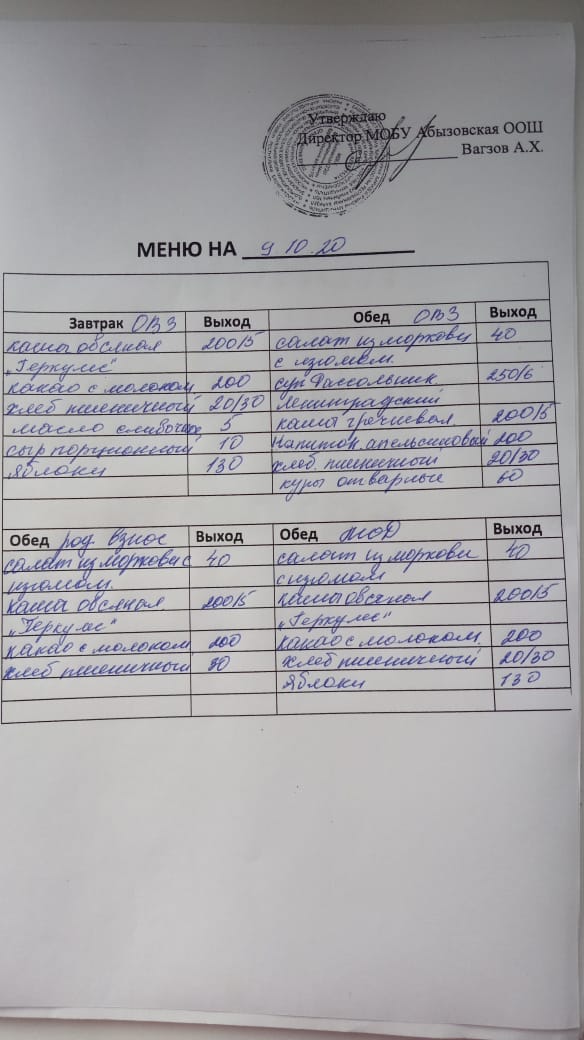 Утверждаю
Директор МОБУ Абызовская ООШ
Вагзов А.Х.
МЕНЮ НА 9 10.20
Завтрак ОВЗ Выход Обед ОВЗ Выход
каша овсяная 200/5 салат из моркови 40
„Геркулес" с изюмом.
какао с молоком 200 суп Рассольник 250/6
хлеб пшеничный 20/30 Ленинградский
масло сливочное 5 каша гречневая 200/5
сыр порционный 10 Напиток апельсиновый 200
яблоки 130 хлеб пшеничный 20/30
куры отварные 60
Обед род взнос Выход Обед МОД Выход
салат из моркови с 40 салат из моркови 40
изюмом. с изюмом
каша овсяная 200/5 каша овсяная 200/5
„Геркулес" „Геркулес"
какао с молоком 200 какао с молоком 200
хлеб пшеничный 30 хлеб пшеничный 20/30
яблоки 130